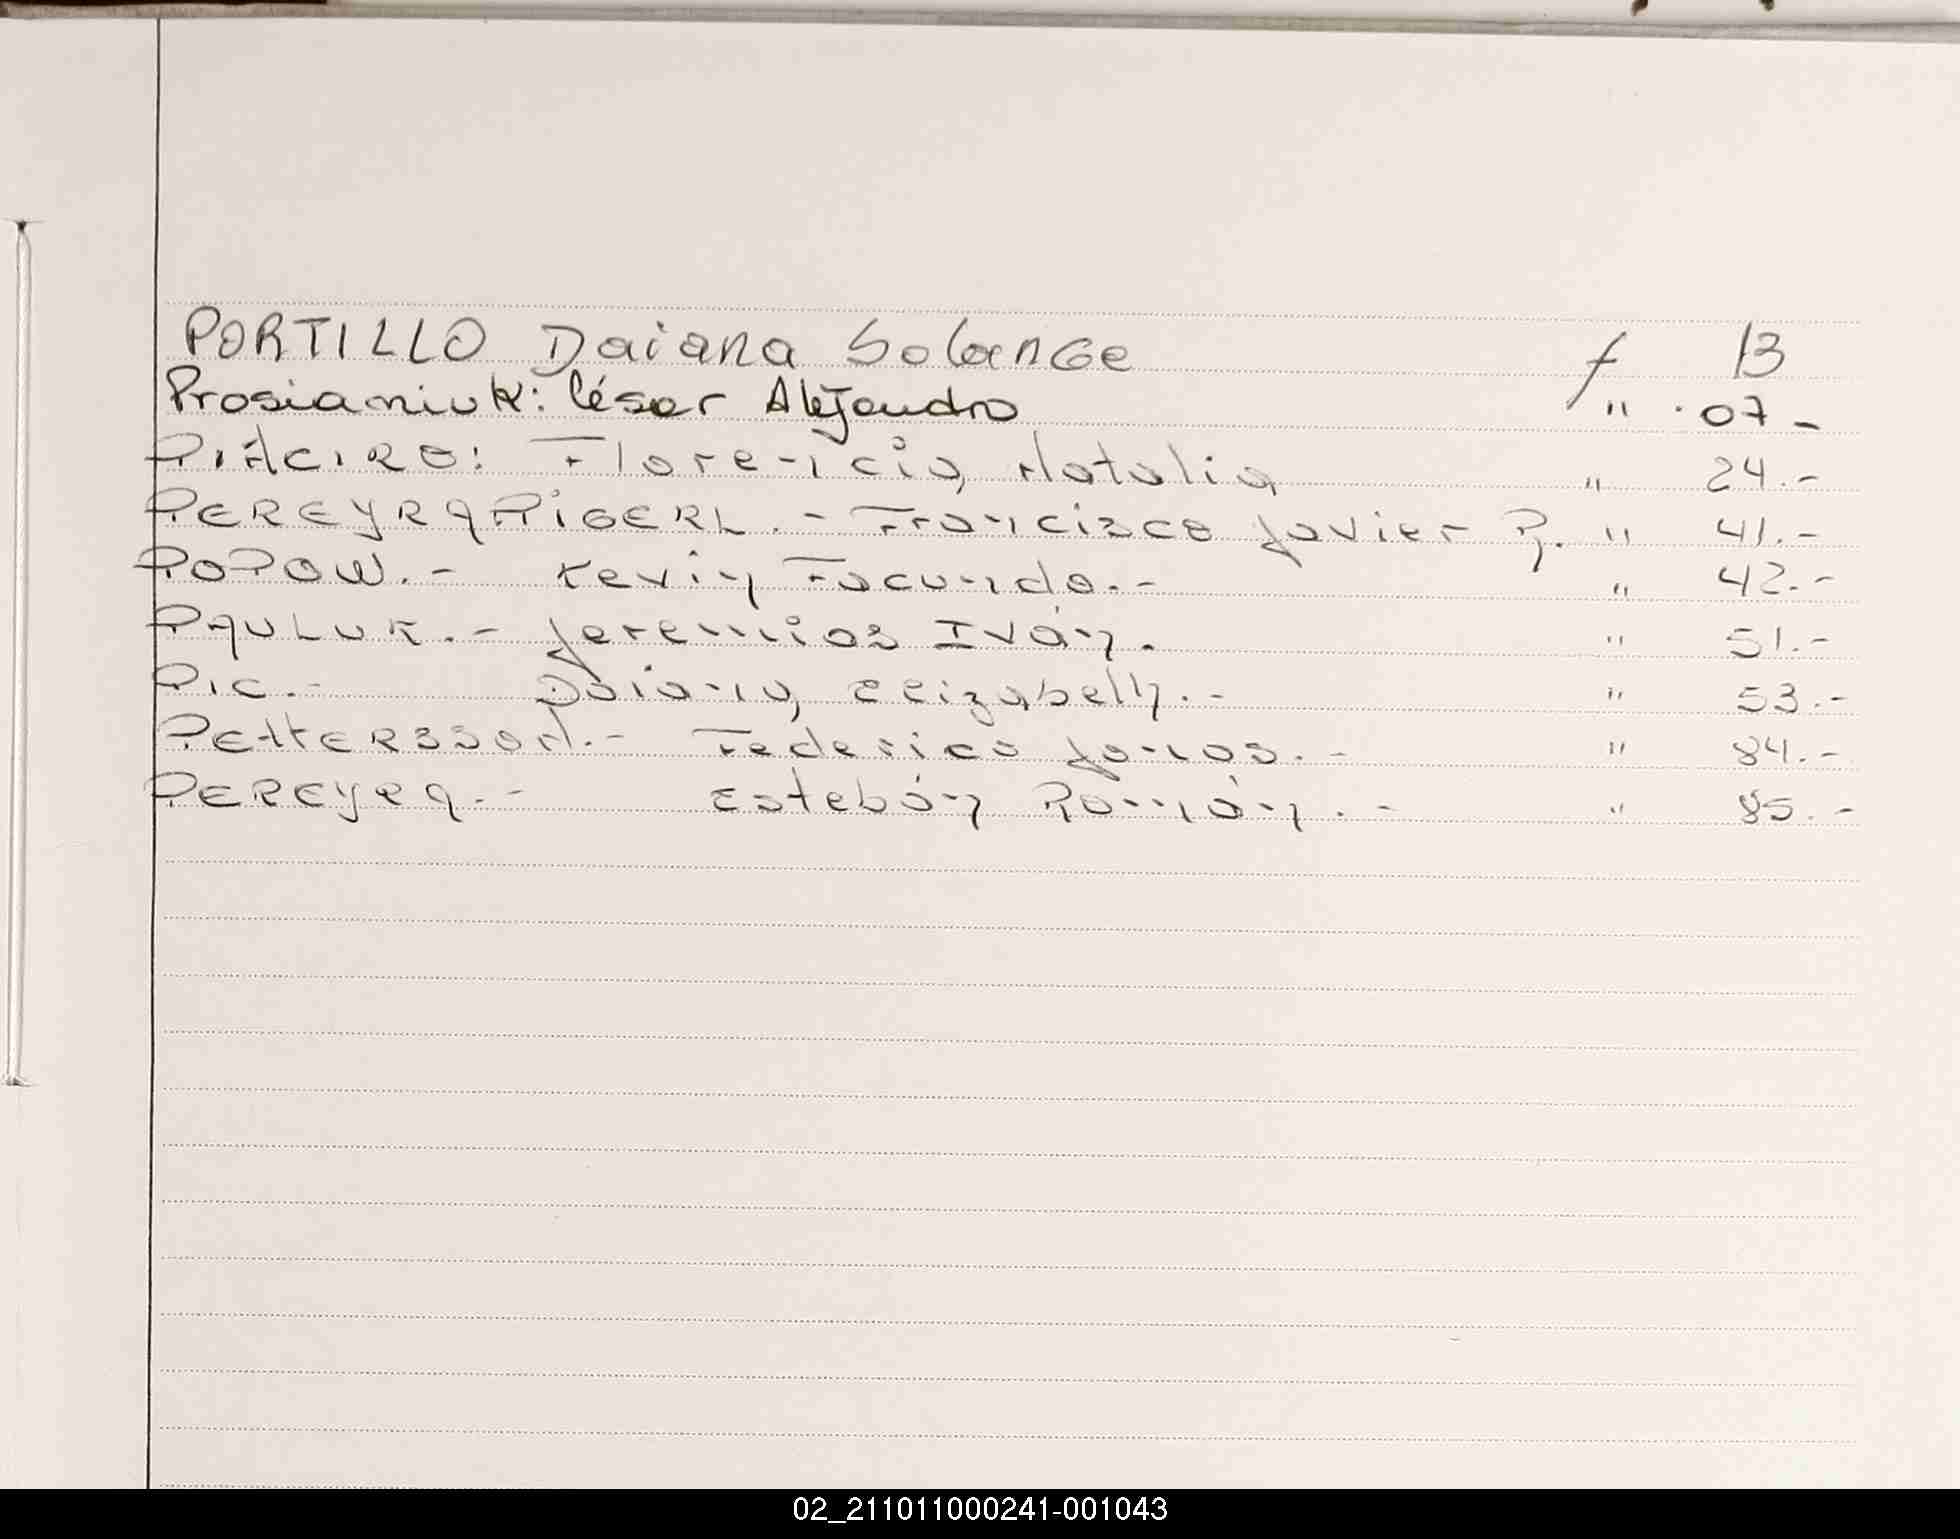 PORTILLO Daiana Solange f 13
Prosianiuk: César Alejandro " 07-
Florencia Natalia " 24.-
PEREYRA PIGERL.- Francisco Javier R. " 41.-
POPOW.- Kevin Facundo.- " 42.-
PAULUK.- Jeremías Iván. " 51.-
PIC.- Daiana Elizabeth.- " 53.-
PETTERSSON.- Federico Jonas.- " 84.-
PEREYRA.- Estebán Román.- " 85.-
02_211011000241-001043